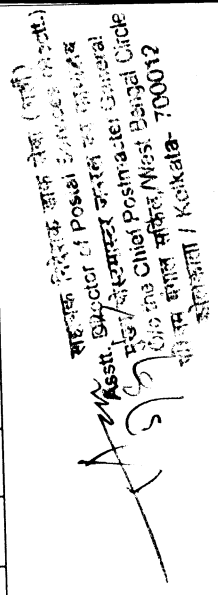 सहायक निदेशक डाक सेवा (भर्ती)
Asstt. Director of Postal Services (Rectt.)
मुख्य पोस्टमास्टर जनरल का कार्यालय
O/o the Chief Postmaster General
पश्चिम बंगाल सर्किल/West Bengal Circle
कोलकाता / Kolkata- 700012